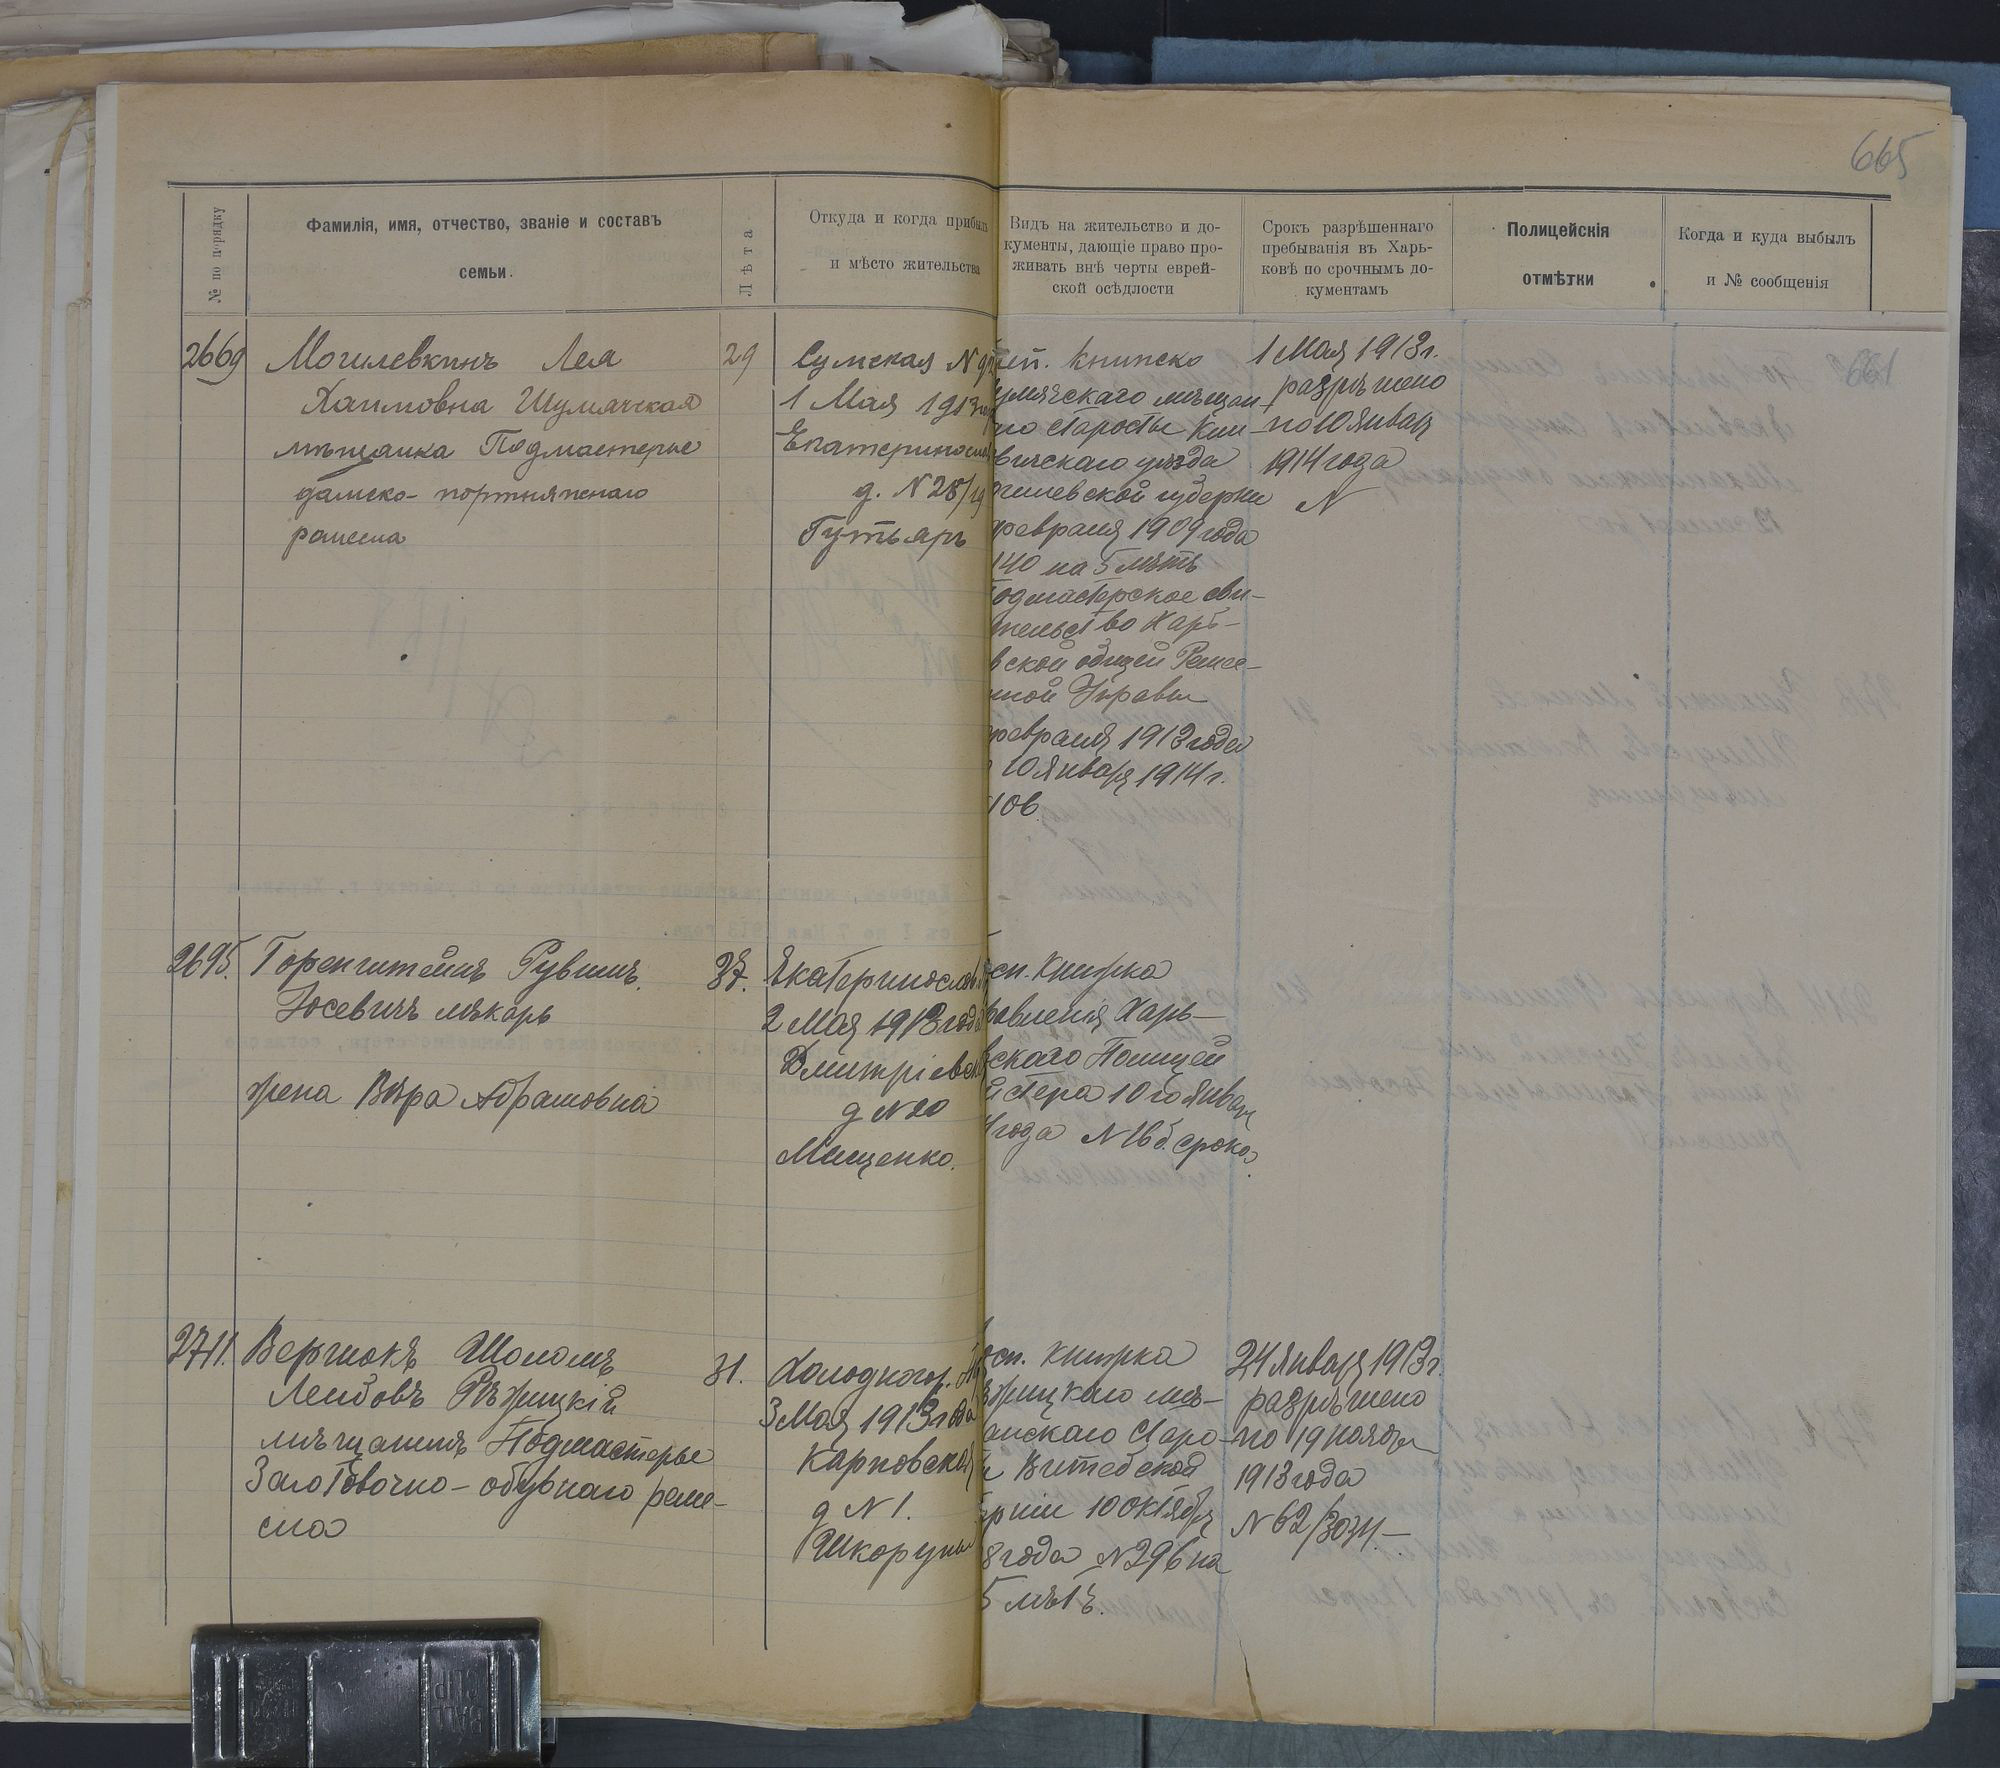 665
№ по порядку
Фамилія, имя, отчество, званіе и составъ
семьи.
Лѣта.
Откуда и когда прибылъ
и мѣсто жительства
Видъ на жительство и до-
кументы, дающіе право про-
живать внѣ черты еврей-
ской осѣдлости
Срокъ разрѣшеннаго
пребыванія въ Харь-
ковѣ по срочнымъ до-
кументамъ
Полицейскія
отмѣтки
Когда и куда выбылъ
и № сообщенія
2669
Могилевкинъ Лея
Хаимовна Шумячская
мѣщанка Подмастерье
дамско-портняжнаго
ремесла
29
Сумская N
1 Мая 1913
Екатеринослав
д. N 28/19
Гутьяръ
мячскаго мѣщан-
го старосты Кли-
вичскаго уѣзда
гилевской губерніи
февраля 1909 года
140 на 5 лѣтъ
одмастерское сви-
тельство Харь-
вской общей Реме-
нной Управы
февраля 1913 года
10 Января 1914 г.
106
1 Мая 1913 г.
разрѣшено
по 10 Января
1914 года
N
2695.
Горенштейнъ Рувинъ
Іосевичъ лѣкарь
жена Вѣра Абрамовна
37.
Екатеринослав
2 Мая 1913 года
Дмитріевск
д N 20
Мищенко.
сп. Книжка
равленія Харь-
вскаго Полицей
йстера 10го Января
года N 16 б. срока
2711.
Вергиокъ Шоломъ
Лейбовъ Рѣжицкій
мѣщанинъ Подмастерье
Заготовочно-обувнаго реме-
сла
31.
Холодногор.
3 Мая 1913 года
Карповская
д N 1.
Шкорупы
сп. книжка
ѣжицкаго мѣ-
анскаго Старо-
ы Витебской
ерніи 10 Октября
8 года N 296 на
5 лѣтъ.
24 Января 1913 г.
разрѣшено
по 19 ноября
1913 года
N 62/3034-
661